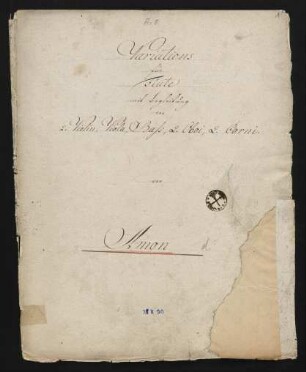 Variations
für
Flöte
mit Begleitung
von
2. Violin, Viola, Bass, 2. Oboi, 2. Corni
von
Amon